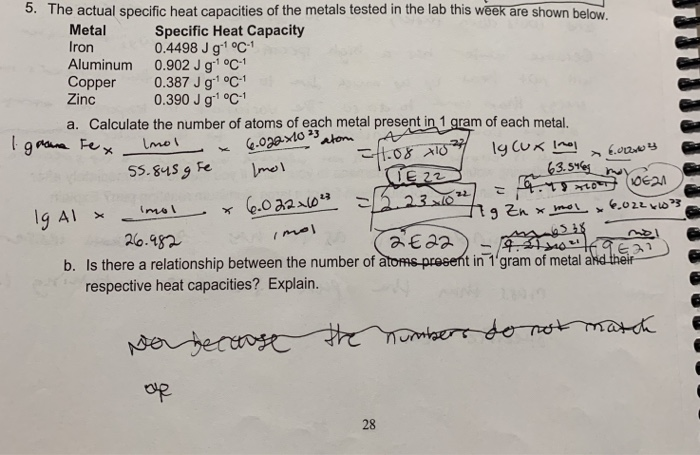 5. The actual specific heat capacities of the metals tested in the lab this week are shown below.
Metal Specific Heat Capacity
Iron 0.4498 J g⁻¹ °C⁻¹
Aluminum 0.902 J g⁻¹ °C⁻¹
Copper 0.387 J g⁻¹ °C⁻¹
Zinc 0.390 J g⁻¹ °C⁻¹
a. Calculate the number of atoms of each metal present in 1 gram of each metal.
Fe x 1mol / 55.845 g Fe x 6.022x10²³ atom / 1mol = 1.08 x10²²
1E22
1g Cu x 1mol / 63.546g x 6.022x10²³ / mol =
10E21
1g Al x 1mol / 26.982 x 6.022x10²³ / 1mol = 2.23x10²²
2E22
1g Zn x mol / 65.38 x 6.022x10²³ / mol =
9E21
b. Is there a relationship between the number of atoms present in 1 gram of metal and their
respective heat capacities? Explain.
No because the numbers do not match
up
28